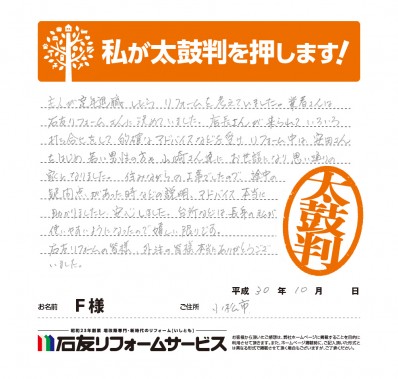 私が太鼓判を押します!
主人が定年退職し、もうリフォームを考えていました。業者さんは
石友リフォームさんに決めていました。店長さんが来られていろいろ
打ち合せをして的確なアドバイスなどを受け、リフォーム中は、安田さん
をはじめ、若い男性の方々、山崎さん達にお世話になり思い通りの
家になりました。住みながらの工事でしたので、途中の
疑問点があった時などの説明、アドバイス本当に
助かりましたし、安心しました。台所などは長身の私が
使いやすいようになったので嬉しい限りです。
石友リフォームの皆様、外注の皆様本当にありがとうござ
いました。
太鼓判
平成 30 年 10 月 日
お名前 F様 ご住所 小松市
昭和23年創業 増改築専門・新時代のリフォーム[いしとも]
石友リフォームサービス
お客様から頂いたご感想は、弊社ホームページに掲載することを目的に
利用させて頂きます。また、ホームページ掲載時に、ご記入頂いた形式と
は異なる形式で掲載させて頂く場合もございますが、ご了承ください。